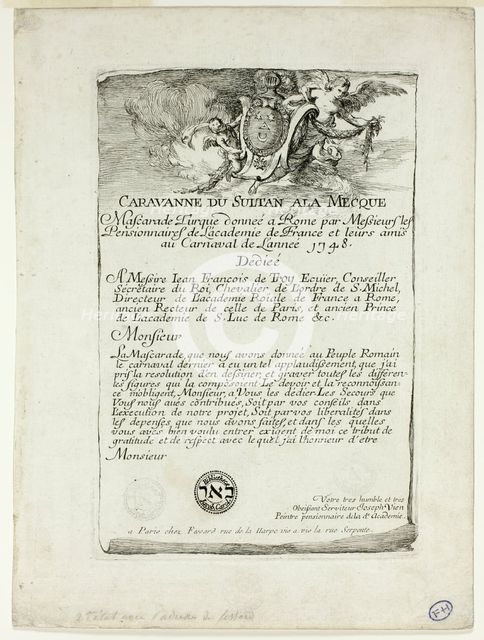 CARAVANNE DU SULTAN ALA MECQUE
Mascarade Turque donneé a Rome par Messieurs les
Pensionnaires de L'academie de France et leurs amis
au Carnaval de L'anneé 1748.
Dedieé
A Messire Iean François de Troy Ecuïer, Conseiller,
Secretaire du Roi, Chevalier de L'ordre de S. Michel,
Directeur de L'academie Roiale de France a Rome,
ancien Recteur de celle de Paris, et ancien Prince
de L'academie de S. Luc de Rome &c.
Monsieur
La Mascarade, que nous avons donneé au Peuple Romain
le carnaval dernier à eu un tel applaudissement, que j'ai
pris la resolution d'en dessiner et graver toutes les differen-
tes figures qui la composoient Le devoir et la reconnoissan-
ce m'obligent, Monsieur, a Vous les dedier Les Secours que
Vous nous aués contribués, Soit par vos conseils dans
L'execution de notre projet, Soit par vos liberalités dans
les depenses que nous avons faites, et dans les quelles
vous aués bien voulu entrer exigent de moi ce tribut de
gratitude et de respect avec le quel j'ai l'honneur d'etre
Monsieur
Votre tres humble et tres
Obeissant Serviteur Joseph Vien
Peintre pensionnaire de la de. Academie.
a Paris chez Fessard rue de la Harpe vis a vis la rue Serpente.
FH